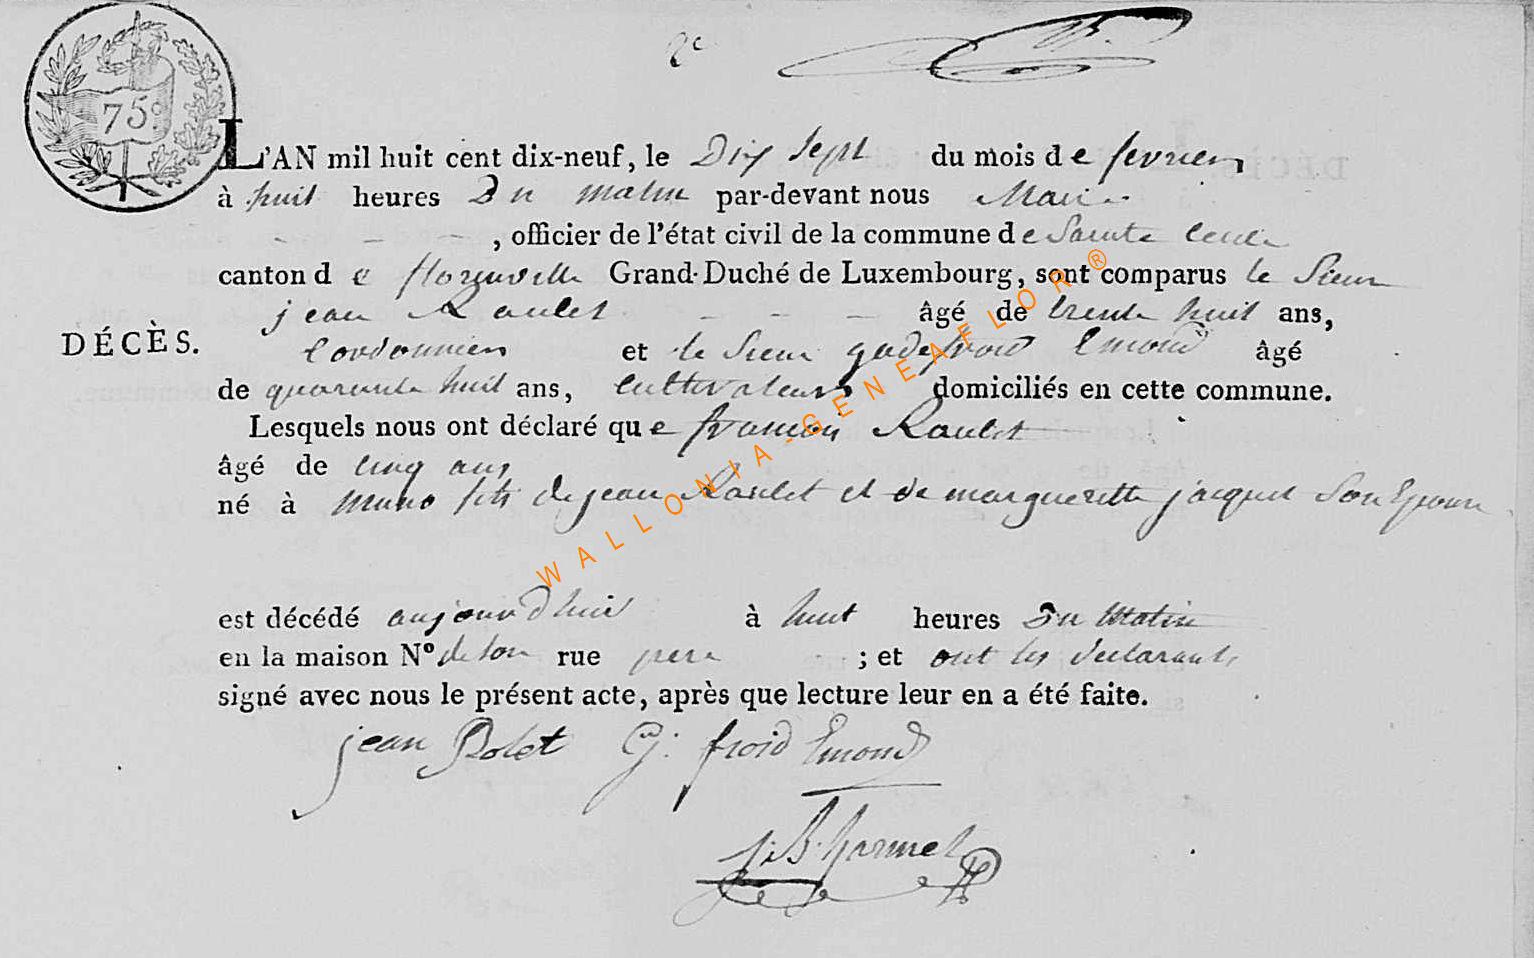 2e
75c
L'AN mil huit cent dix-neuf, le Dix Sept du mois de fevrier
à huit heures Du matin par-devant nous Maire
- - - , officier de l'état civil de la commune de Sainte Cecile
canton de florenville Grand-Duché de Luxembourg, sont comparus le Sieur
jean Raulet - - - âgé de trente huit ans,
DÉCÈS.
Cordonnier et le Sieur godefroid Emond âgé
de quarante huit ans, Cultivateurs domiciliés en cette commune.
Lesquels nous ont déclaré que francois Raulet
âgé de cinq ans
né à Muno fils de jean Raulet et de marguerette jacquet Son Epouse
est décédé aujourd'huit à huit heures Du Matin
en la maison N° de son rue pere ; et ont les déclarants
signé avec nous le présent acte, après que lecture leur en a été faite.
jean Rolet G: froid Emond
J: B. harmel
WALLONIA-GENEAFLOR®